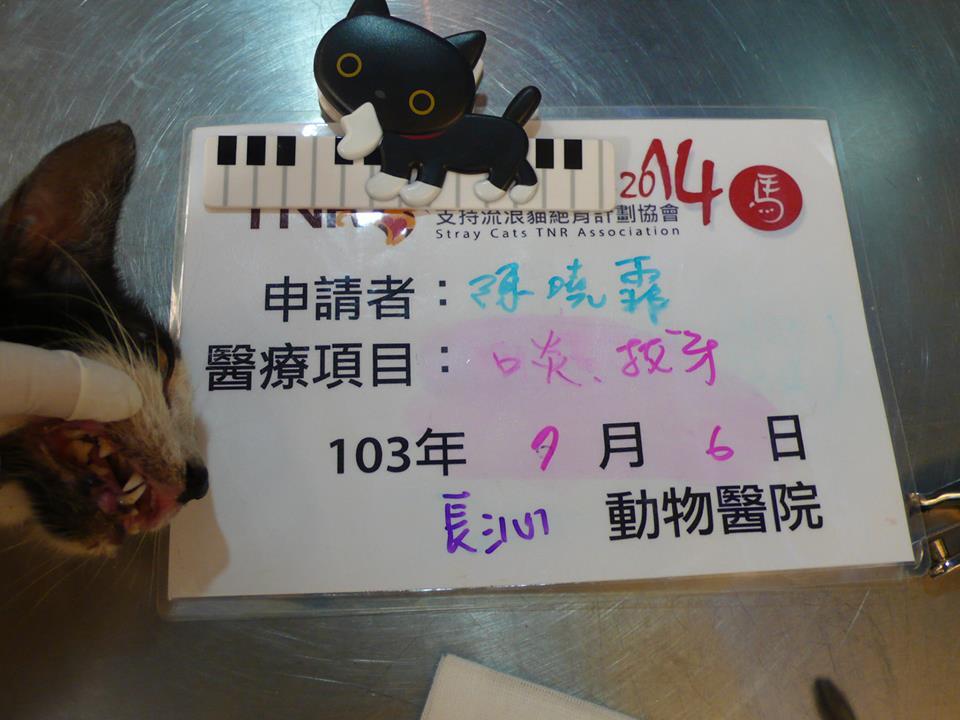 2014 馬
TNR 支持流浪貓絕育計劃協會
Stray Cats TNR Association
申請者：孫曉霏
醫療項目：口炎、拔牙
103年 9月 6日
長沁 動物醫院